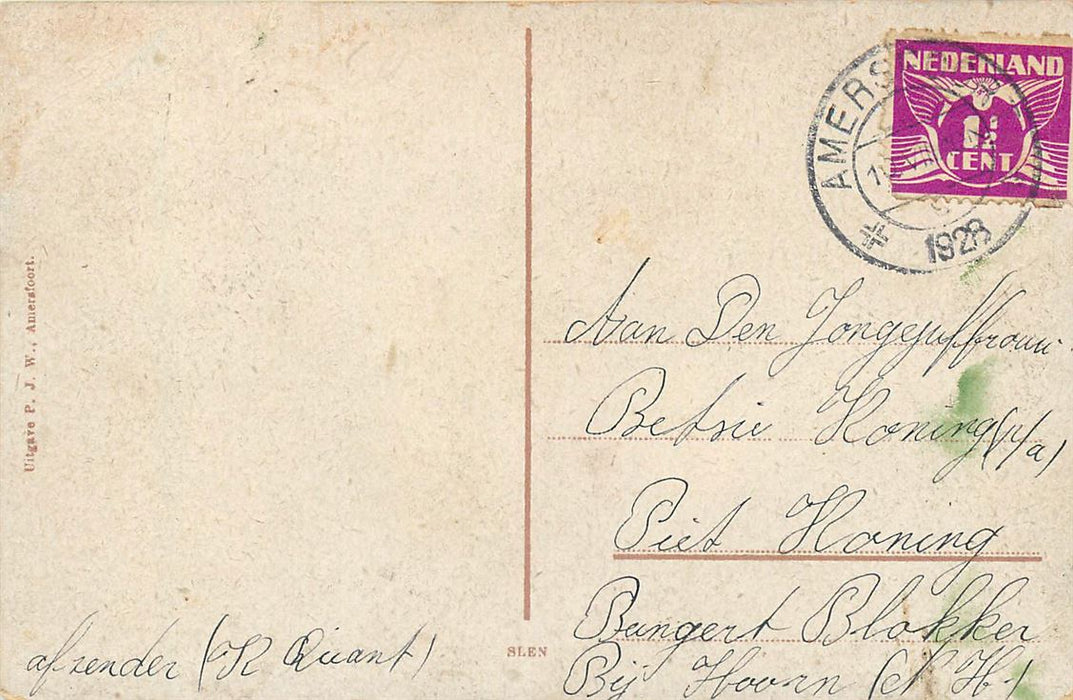 NEDERLAND
1½
CENT
AMERS
1928
Uitgave P. J. W., Amersfoort.
Aan Den Jongejuffrouw
Betsie Koning (p/a)
Piet Koning
Bangert Blokker
Bij Hoorn (N H.)
afzender (K Quant)
SLEN